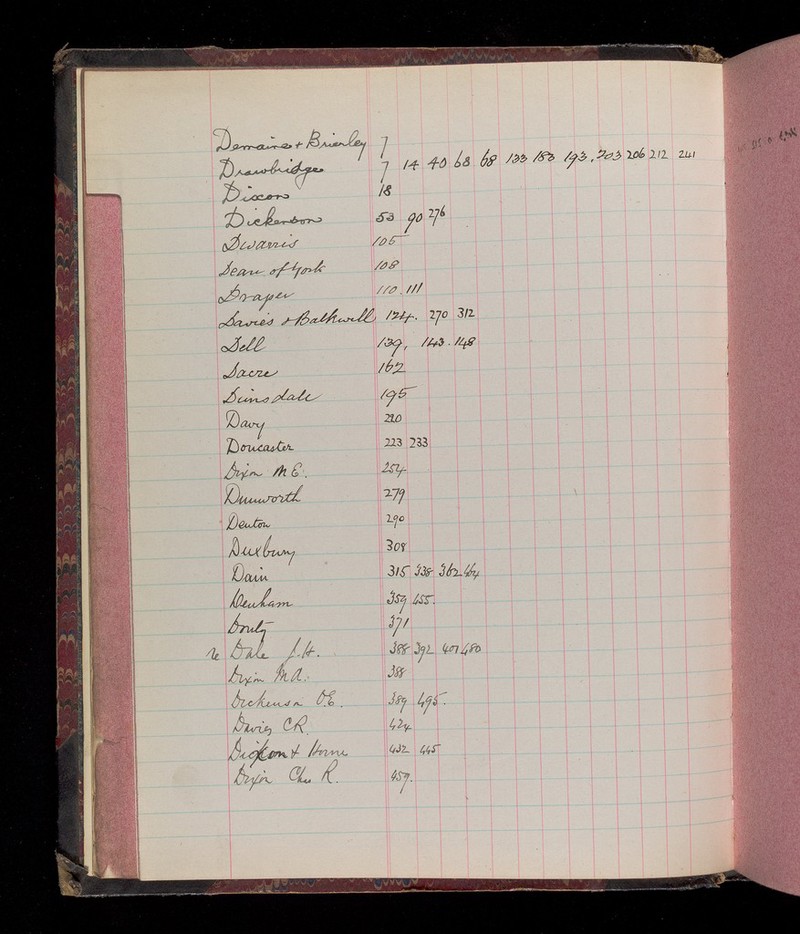 Demaine + Brierley 7
Drawbridge 7 14 40 68 68 133 183 193, 203 206 212 241
Dixon 18
Dickenson 53 90 276
Dwarris 105
Dean of York 108
Draper 110. 111
Davies & Balkwill 124. 270 312
Dell 139, 143. 148
Dacre 162
Dinsdale 195
Davy 210
Doncaster 223 233
Dixon M E. 254
Dunworth 279
Denton 290
Duxbury 308
Dain 315 338 362 464
Denham 359 455.
Douty 371
Dale J.H. 388 392 401 480
Dixon M A. 388
Dickenson O.E. 389 495.
Davies C R. 424
& Horne 432 445
Dixon Chas R. 459.